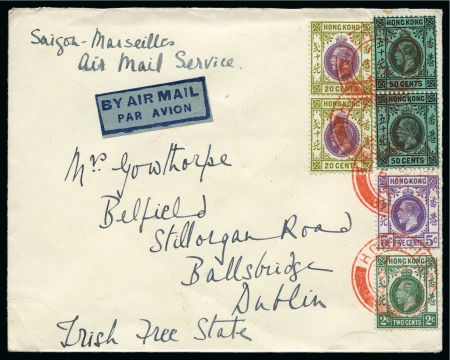 Saigon-Marseilles
Air Mail Service.
BY AIR MAIL
PAR AVION
HONG KONG
20 CENTS
HONG KONG
50 CENTS
HONG KONG
20 CENTS
HONG KONG
50 CENTS
HONG KONG
5c FIVE CENTS 5c
HONG KONG
2c TWO CENTS 2c
Mrs Gowthorpe
Belfield
Stillorgan Road
Ballsbridge
Dublin
Irish Free State